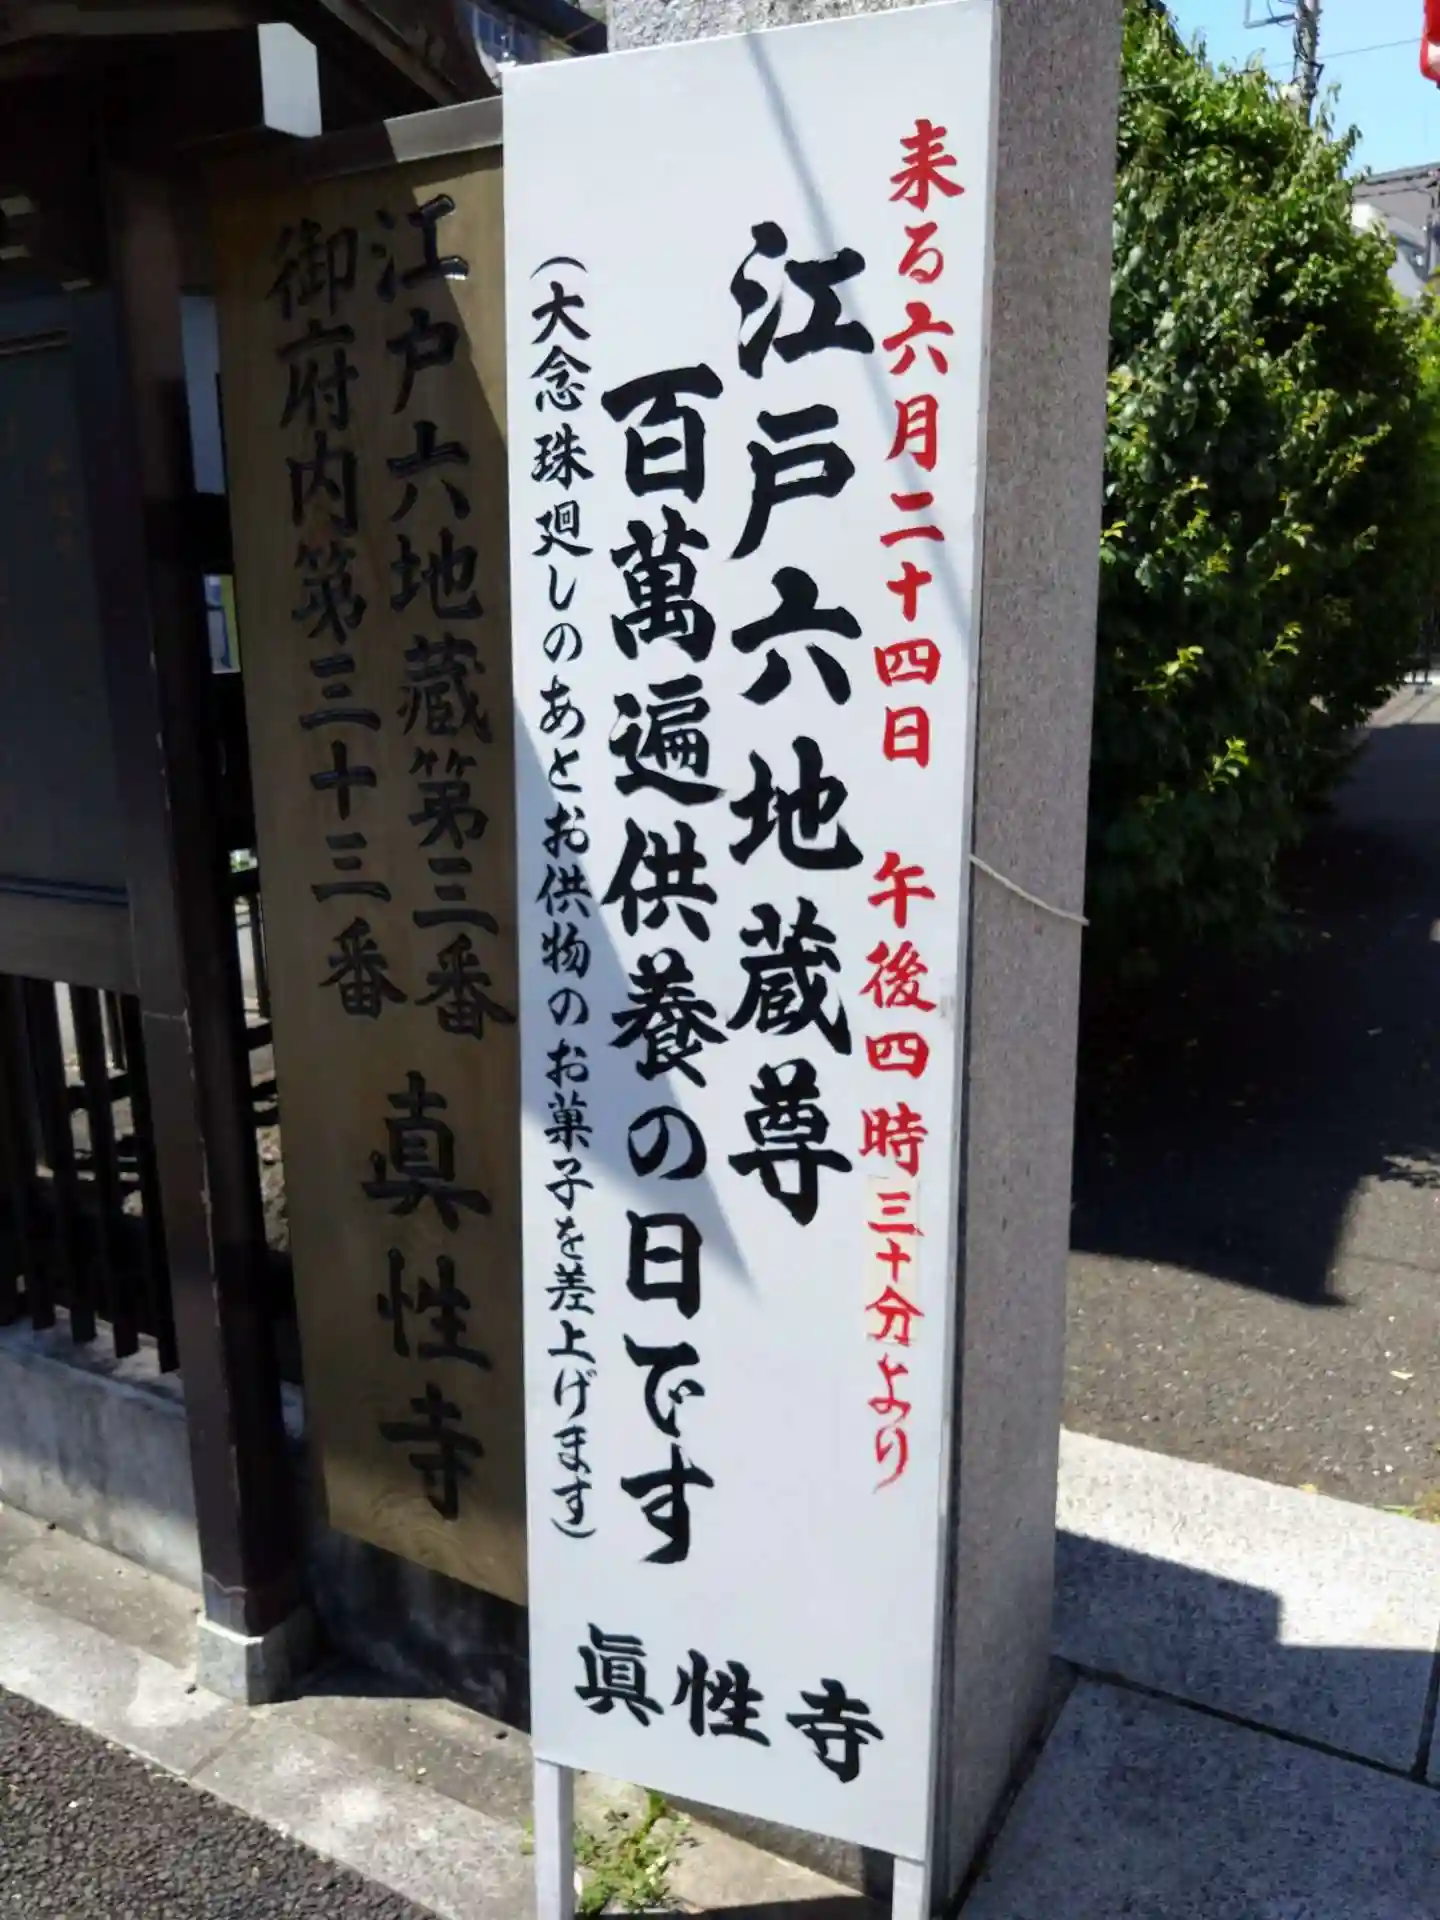 来る六月二十四日 午後四時三十分より
江戸六地蔵尊
百萬遍供養の日です
（大念珠廻しのあとお供物のお菓子を差上げます）
眞性寺
江戸六地蔵第三番 真性寺
御府内第三十三番